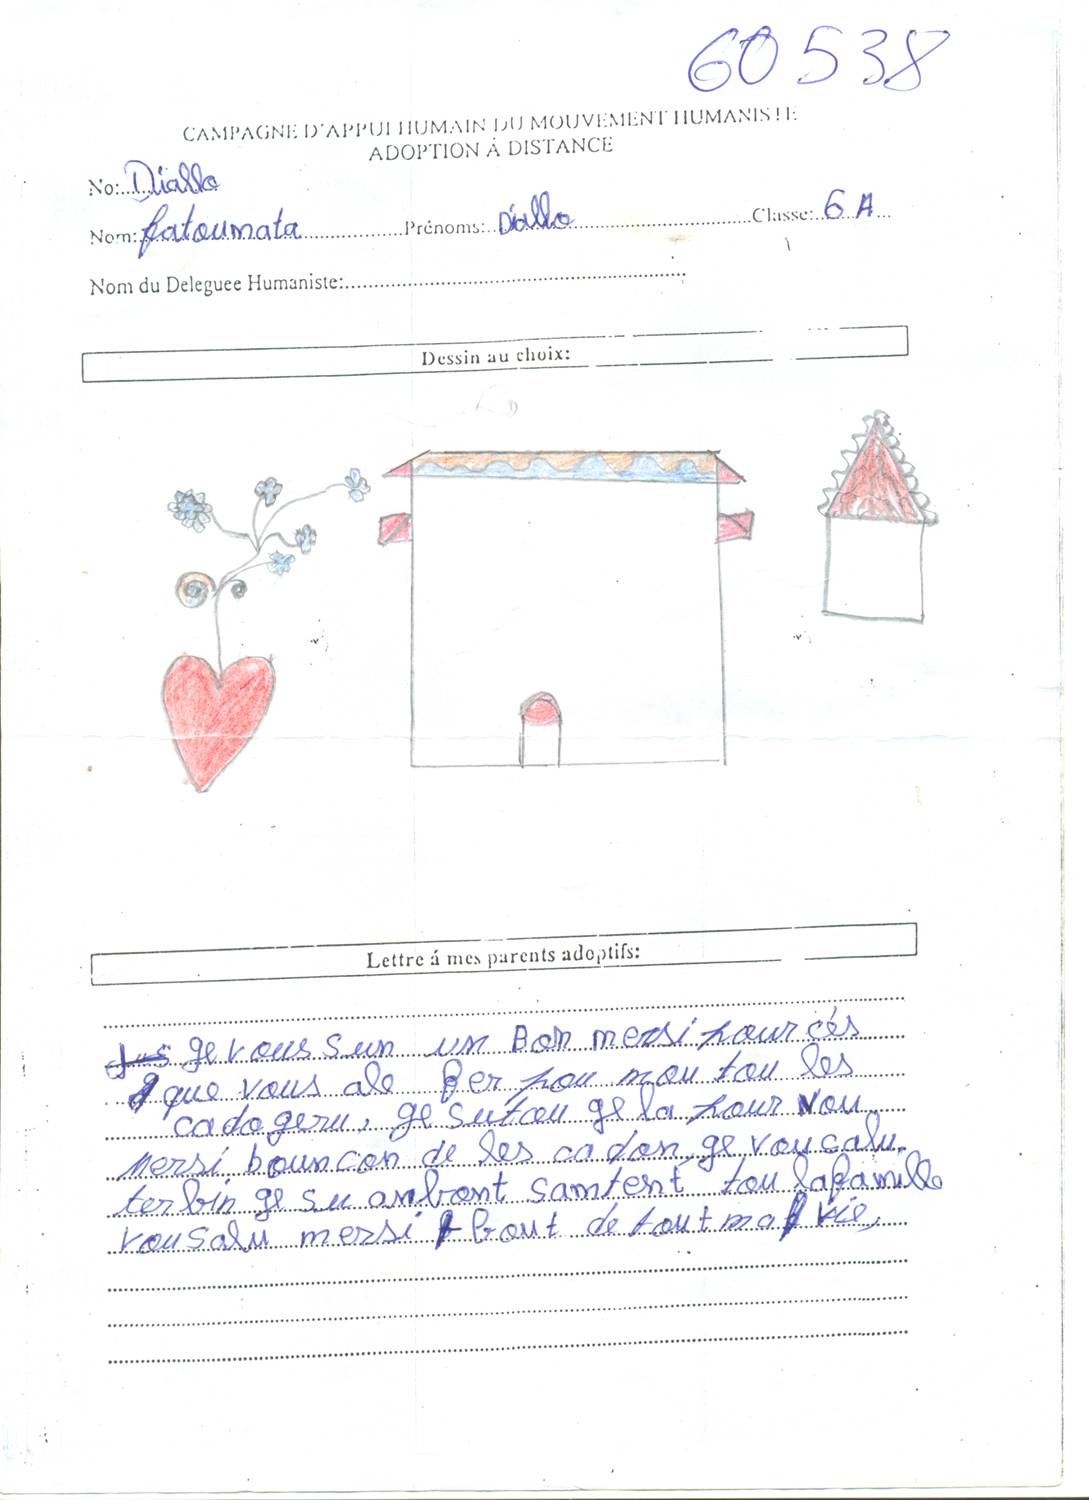 60538
CAMPAGNE D'APPUI HUMAIN DU MOUVEMENT HUMANISTE
ADOPTION À DISTANCE
No:..Diallo
Nom: fatoumata Prénoms: Diallo Classe: 6 A
Nom du Deleguee Humaniste:
Dessin au choix:
Lettre á mes parents adoptifs:
ge vous sun un Bon mersi pour cés
que vous ale fer pou mou tou les
cadogeru, ge sutou ge la pour vou
mersi bouncon de les cadon, ge vou salu
ter bin ge su anbont samtent tou lafamille
vousalu mersi bout de tout ma vie,